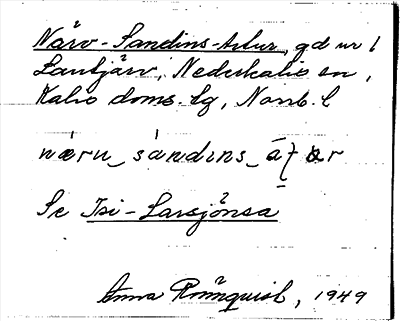 Närv-Sandins-Artur, gd nr 1
Lantjärv, Nederkalix sn,
Kalix doms.lg, Norrb. l
Se Isi-Larsjönsa
Anna Rönnquist, 1949